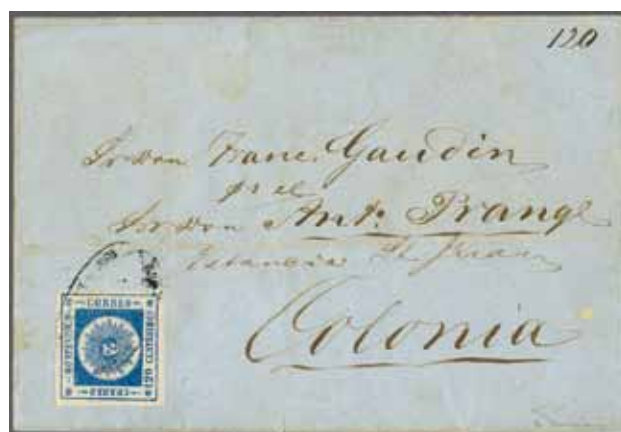 120
Sr Don Franc. Gaudin
pr el
Sr Don Ant: Prange
Estancia Sn Juan
Colonia
CORREO
MONTEVIDEO
120 CENTESIMOS